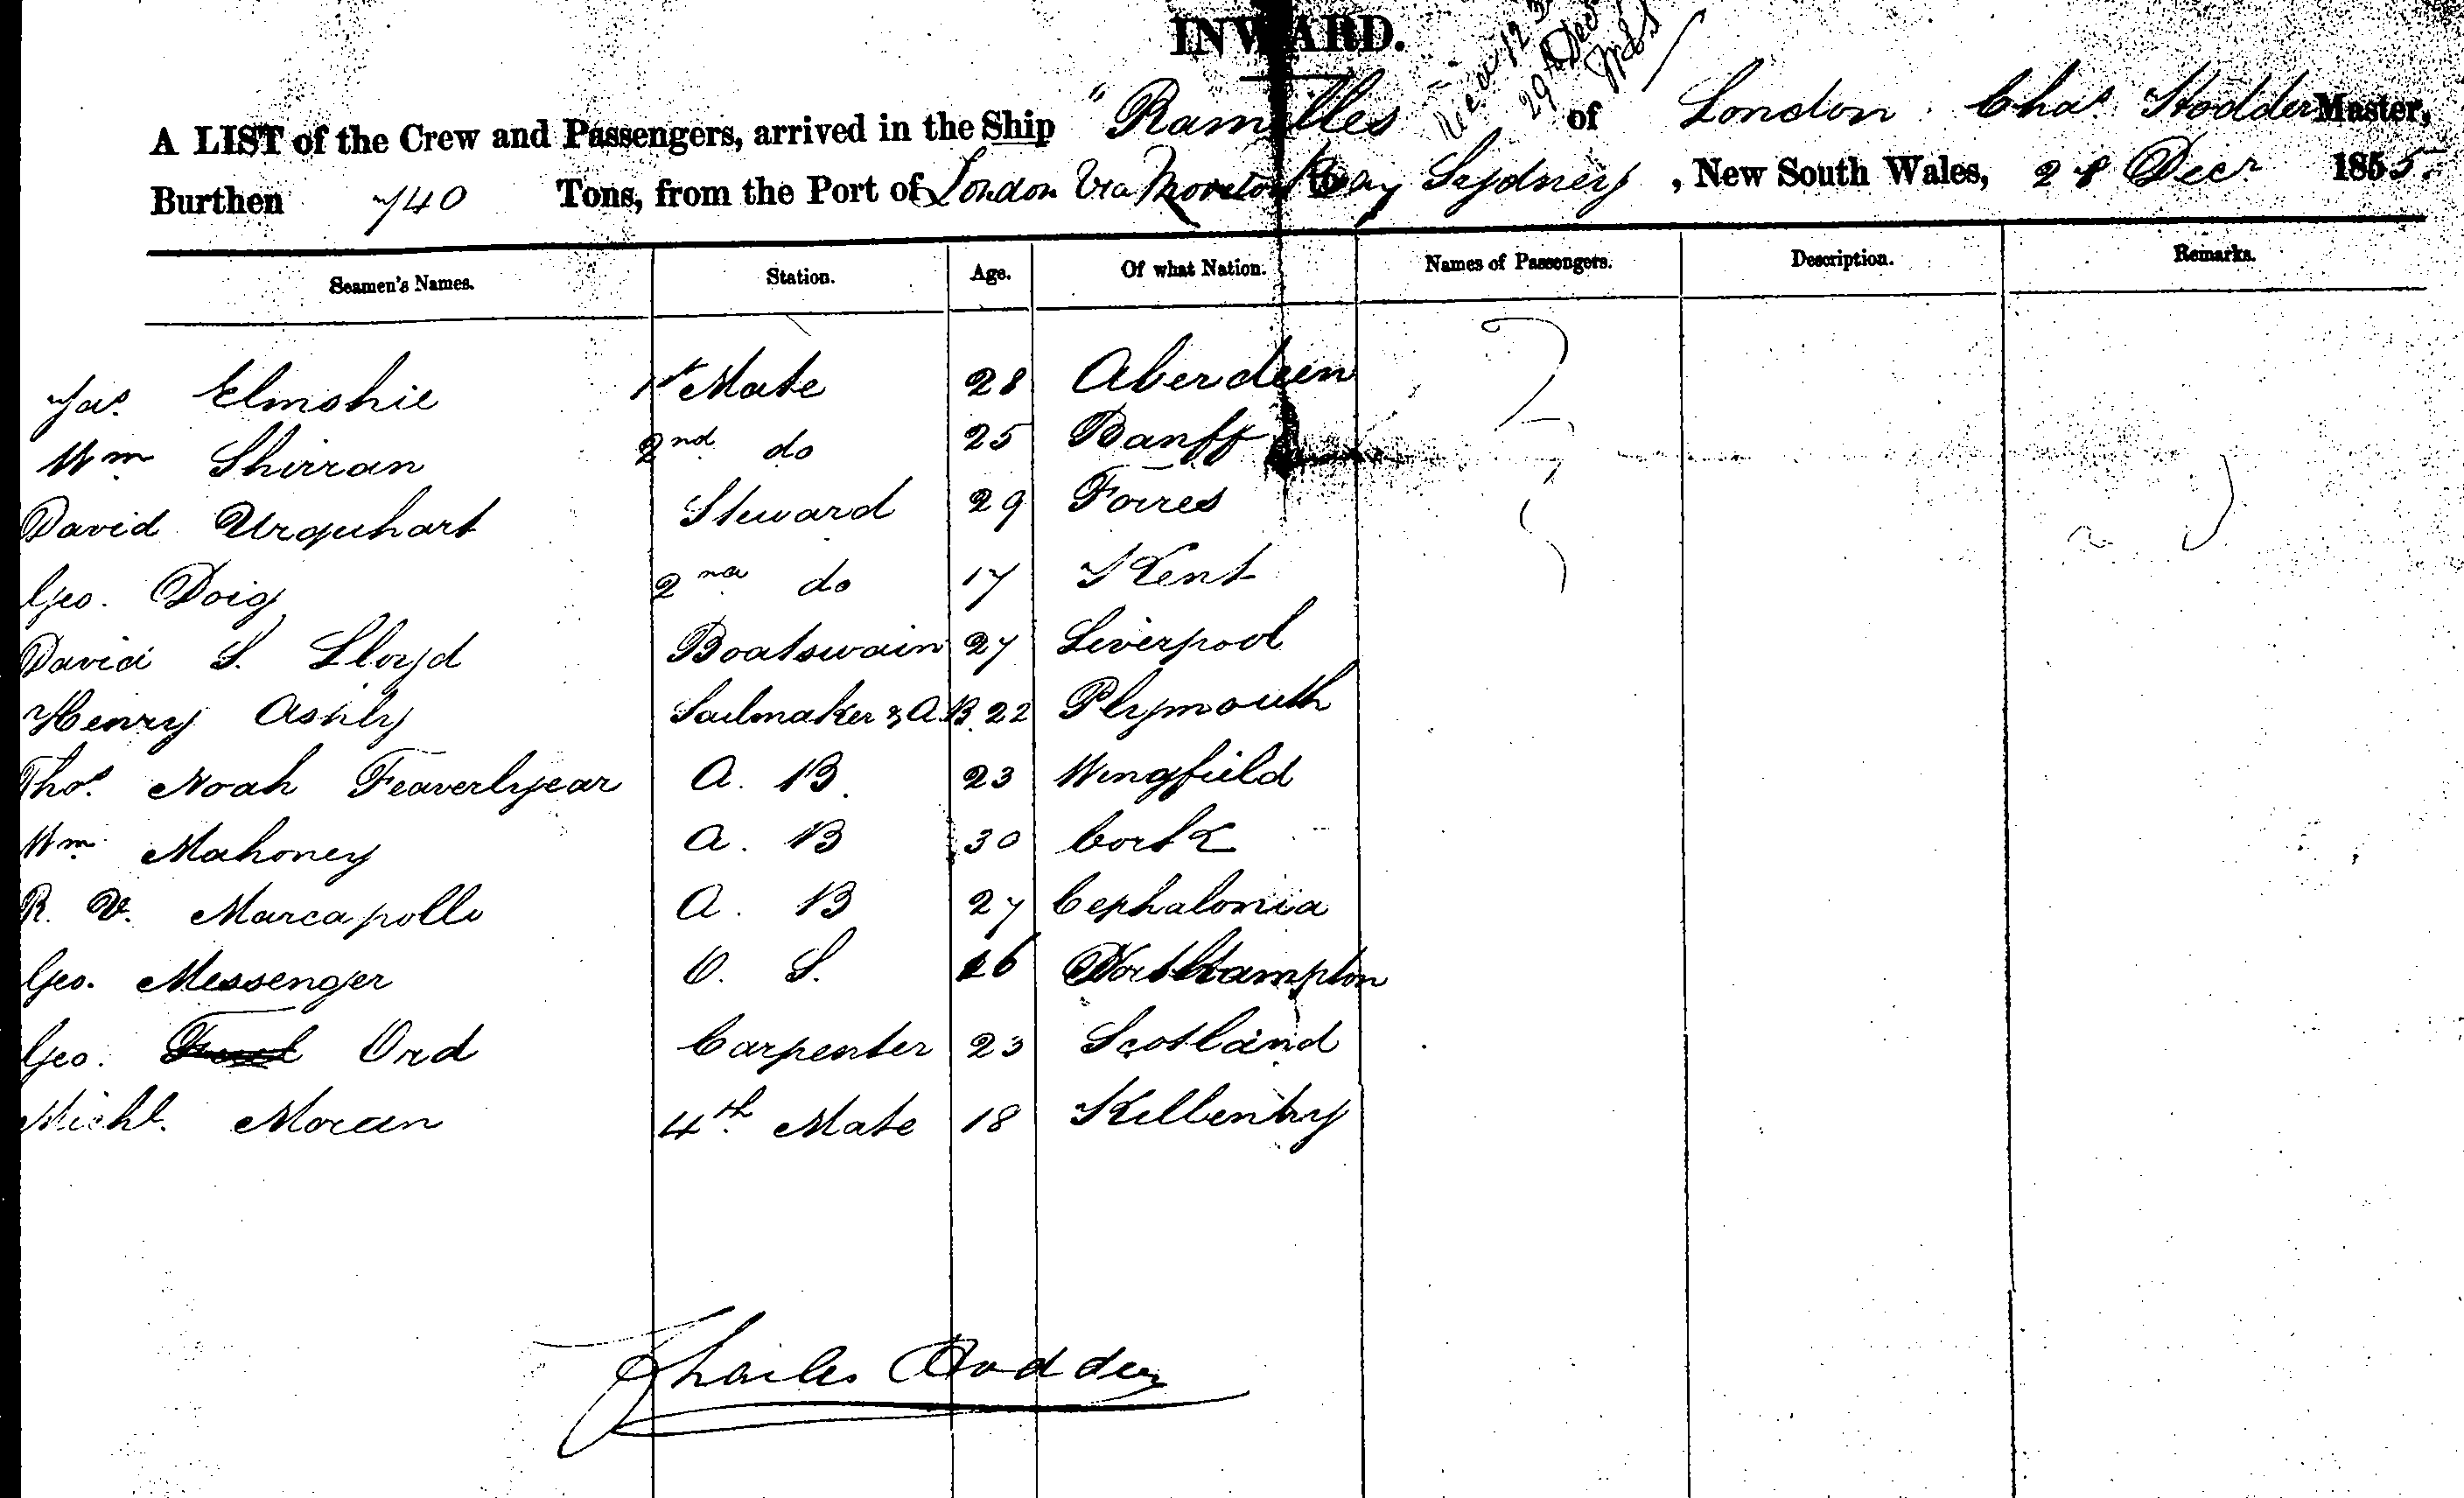 INWARD.
29th Decr
A LIST of the Crew and Passengers, arrived in the Ship "Ramillies" of London Chas. Hodder Master,
Burthen 740 Tons, from the Port of London Via Moreton Bay Sydney, New South Wales, 28 Decr 1855.
Seamen's Names. Station. Age. Of what Nation. Names of Passengers. Description. Remarks.
Jas. Elmshie 1st Mate 28 Aberdeen
Wm Shirran 2nd do 25 Banff
David Urquhart Steward 29 Forres
Geo. Doig 2nd do 17 Kent
David S. Lloyd Boatswain 27 Liverpool
Henry Ashly Sailmaker & A.B. 22 Plymouth
Thos. Noah Feaverlyear A. B. 23 Wingfield
Wm. Mahoney A. B 30 Cork
R. V. Marcapollo A. B 27 Cephalonia
Geo. Messenger O. S. 16 Northampton
Geo. Ord Carpenter 23 Scotland
Michl. Moran 4th Mate 18 Killenhy
Charles Hodder